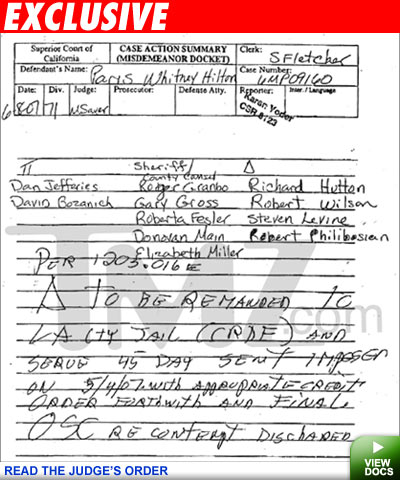 EXCLUSIVE
Superior Court of California
CASE ACTION SUMMARY (MISDEMEANOR DOCKET)
Clerk: S Fletcher
Defendant's Name: Paris Whitney Hilton
Case Number: 6MP09160
Date: Div. Judge: Prosecutor: Defense Atty. Reporter: Inter. / Language
6/8/07 71 MSauer Karen Yoder
CSR 8123
π Sheriff Δ
County Counsel
Dan Jefferies Roger Granbo Richard Hutton
David Bozanich Gary Gross Robert Wilson
Roberta Fesler Steven Levine
Donovan Main Robert Philibosian
Elizabeth Miller
PER 1203.016E
Δ TO BE REMANDED TO
LA CTY JAIL (CRDF) AND
SERVE 45 DAY SENT IMPOSED
ON 5/4/07 with appropriate credit
ORDER FORTHWITH AND FINAL
OSC RE contempt DISCHARED
TMZ.com
READ THE JUDGE'S ORDER
VIEW
DOCS